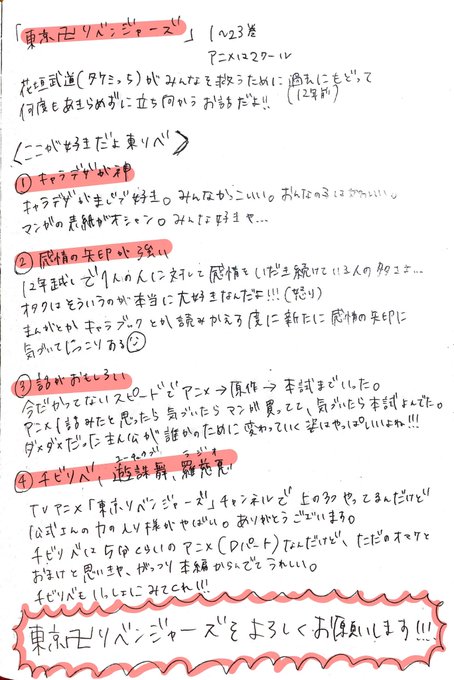 「東京卍リベンジャーズ」 1〜23巻
アニメは2クール
花垣武道(タケミっち)がみんなを救うために過去にもどって
(12年前)
何度もあきらめずに立ち向かうお話だよ!!
<ここが好きだよ東リベ>
①キャラデザが神
キャラデザがまじで好き。みんなかっこいい。おんなの子はかわいい。
マンガの表紙がオシャン。みんな好きや…
②感情の矢印が強い
12年越しで1人の人に対して感情をいだき続けている人の多さよ…
オタクはそういうのが本当に大好きなんだよ!!!(怒り)
まんがとかキャラブックとか読みかえす度に新たに感情の矢印に
気づいてにっこりある
③話がおもしろい
今だかつてないスピードでアニメ→原作→本誌までいった。
アニメ1話みたと思ったら気づいたらマンガ買ってて、気づいたら本誌よんでた。
ダメダメだった主人公が誰かのために変わっていく姿はやっぱいいよね!!!
ユーチューブ ラジオ
④チビリベ、遊誅舞、羅慈悪
TVアニメ「東京リベンジャーズ」チャンネルで上の3つやってるんだけど
公式さんの力の入り様がやばい。ありがとうございます。
チビリベは5分くらいのアニメ(Dパート)なんだけど、ただのオマケと
おまけと思いきや、がっつり本編からんでてうれしい。
チビリベもいっしょにみてくれ!!!
東京卍リベンジャーズをよろしくお願いします!!!